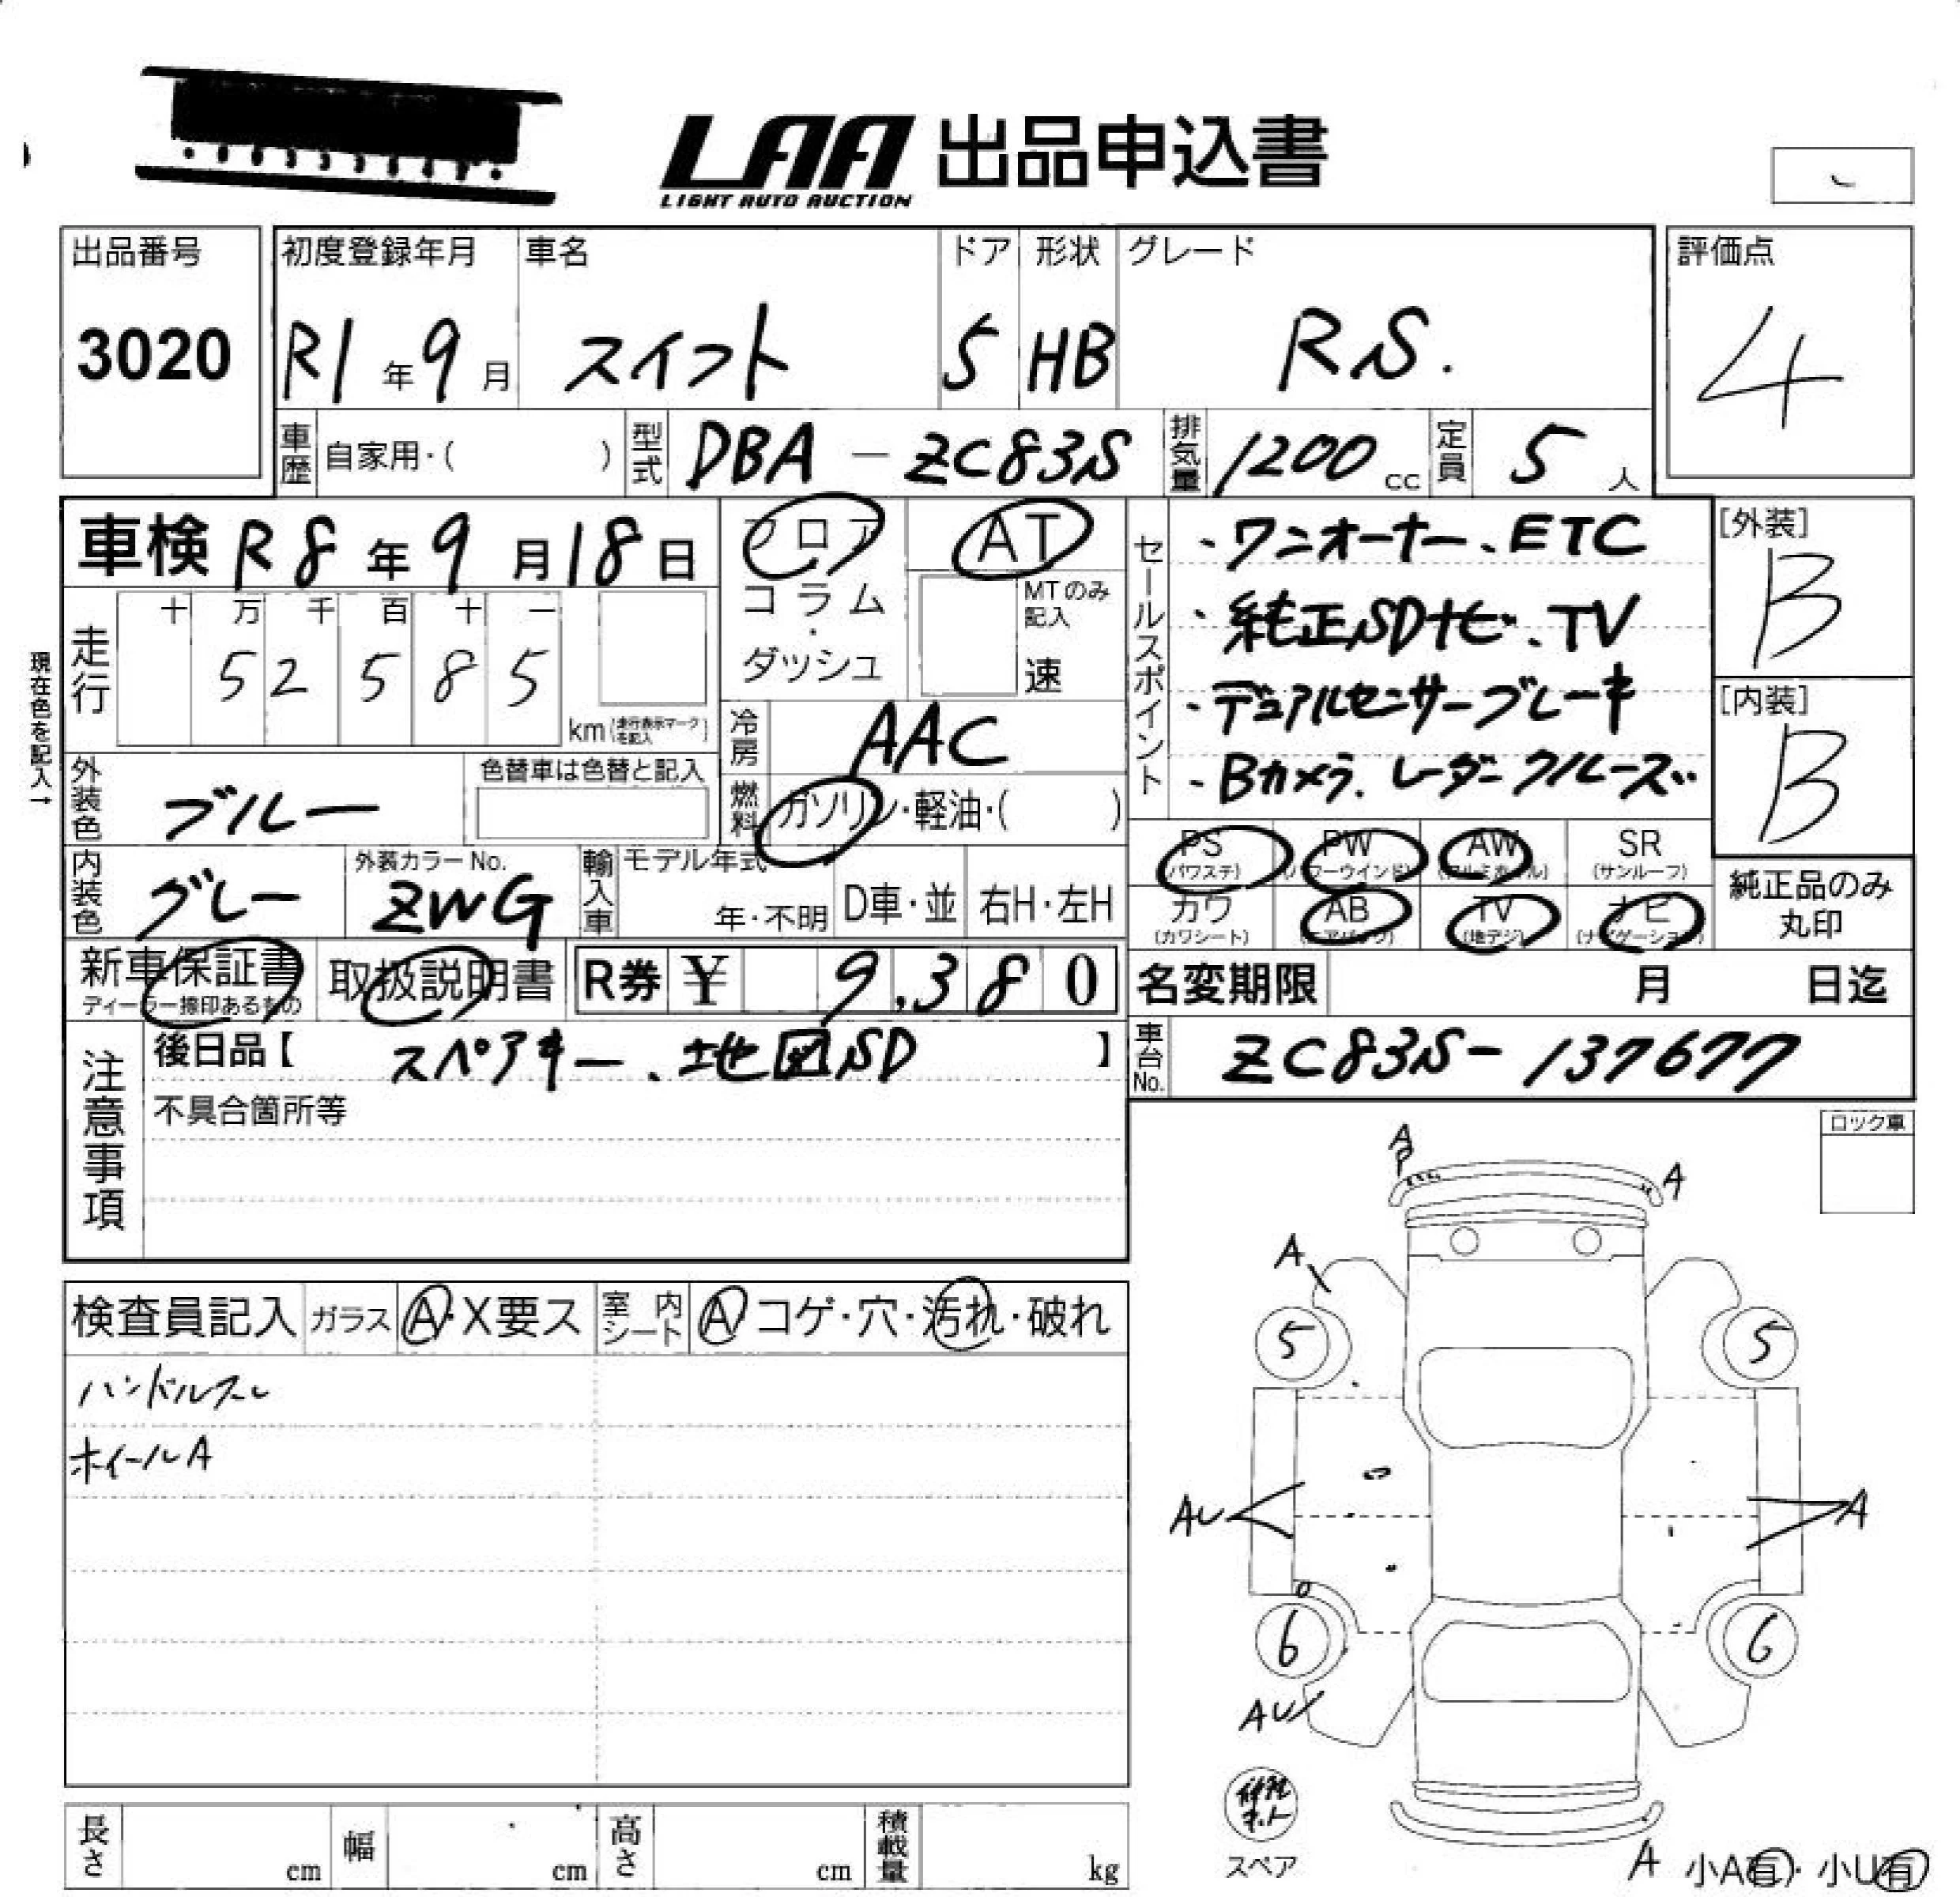 LAA 出品申込書
LIGHT AUTO AUCTION
出品番号
3020
初度登録年月
R1年9月
車名
スイフト
ドア
5
形状
HB
グレード
RS.
評価点
4
車歴 自家用・( )
型式 DBA-ZC83S
排気量 1200cc
定員 5人
車検 R8年9月18日
フロア・コラム・ダッシュ
AT
MTのみ記入
速
セールスポイント
・ワンオーナー、ETC
・純正SDナビ、TV
・デュアルセンサーブレーキ
・Bカメラ、レーダークルーズ
[外装]
B
[内装]
B
現在色を記入→
走行
十 万 千 百 十 一
5 2 5 8 5
km(走行表示マークを記入)
冷房 AAC
燃料 ガソリン・軽油・( )
外装色 ブルー
色替車は色替と記入
内装色 グレー
外装カラーNo.
ZWG
輸入車
モデル年式
年・不明
D車・並
右H・左H
PS
(パワステ)
PW
(パワーウインド)
AW
(アルミホイル)
SR
(サンルーフ)
カワ
(カワシート)
AB
(エアバック)
TV
(地デジ)
ナビ
(ナビゲーション)
純正品のみ
丸印
新車保証書
ディーラー捺印あるもの
取扱説明書
R券 ¥ 9,380
名変期限 月 日迄
注意事項
後日品【スペアキー、地図SD】
不具合箇所等
車台No. ZC83S-137677
ロック車
検査員記入
ガラス A・X要ス
室内シート A コゲ・穴・汚れ・破れ
ハンドルスレ
ホイールA
A
P
A
A
5
5
AU
A
6
6
AU
スペア
A
小A有・小U有
長さ cm
幅 cm
高さ cm
積載量 kg